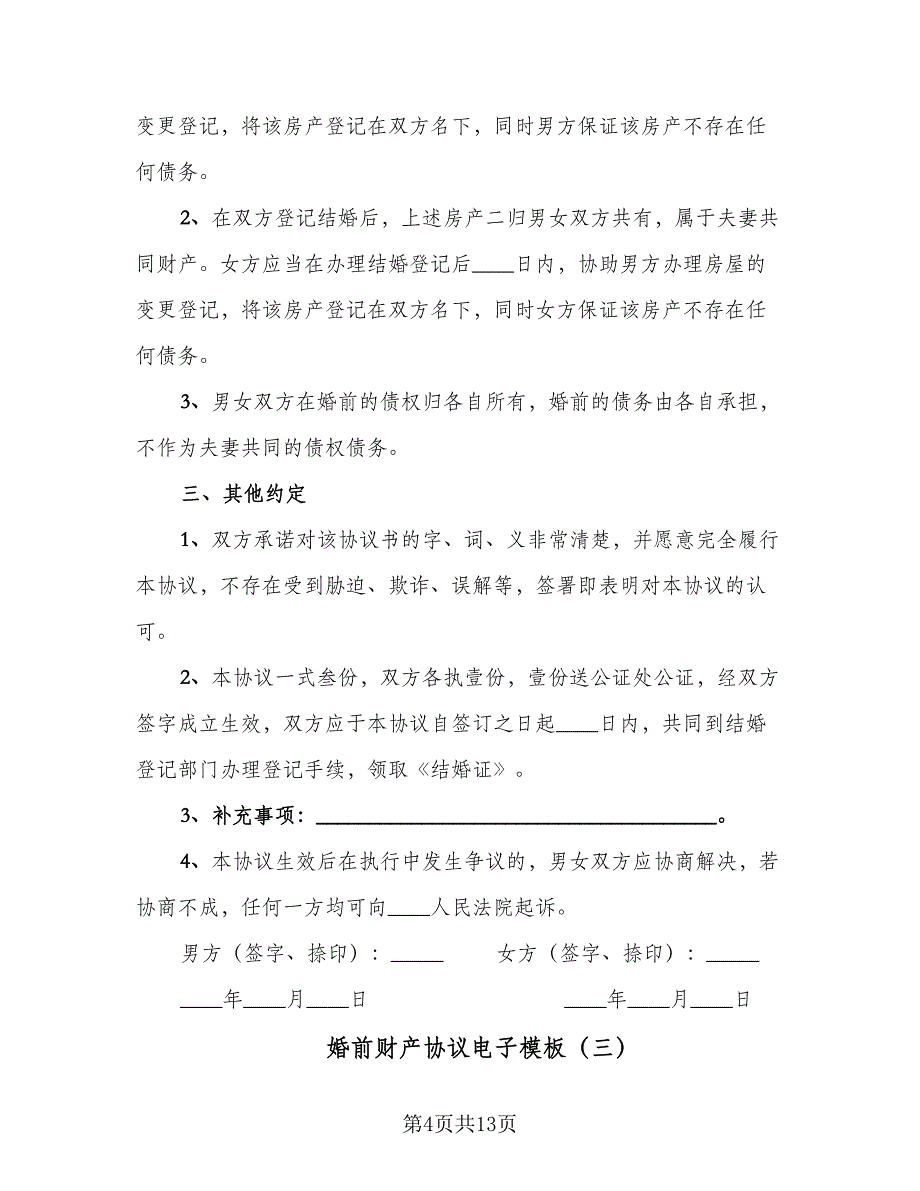 变更登记，将该房产登记在双方名下，同时男方保证该房产不存在任
何债务。
2、在双方登记结婚后，上述房产二归男女双方共有，属于夫妻共
同财产。女方应当在办理结婚登记后____日内，协助男方办理房屋的
变更登记，将该房产登记在双方名下，同时女方保证该房产不存在任
何债务。
3、男女双方在婚前的债权归各自所有，婚前的债务由各自承担，
不作为夫妻共同的债权债务。
三、其他约定
1、双方承诺对该协议书的字、词、义非常清楚，并愿意完全履行
本协议，不存在受到胁迫、欺诈、误解等，签署即表明对本协议的认
可。
2、本协议一式叁份，双方各执壹份，壹份送公证处公证，经双方
签字成立生效，双方应于本协议自签订之日起____日内，共同到结婚
登记部门办理登记手续，领取《结婚证》。
3、补充事项：______________________________________。
4、本协议生效后在执行中发生争议的，男女双方应协商解决，若
协商不成，任何一方均可向____人民法院起诉。
男方（签字、捺印）：_____ 女方（签字、捺印）：_____
____年____月____日 ____年____月____日
婚前财产协议电子模板（三）
第4页共13页